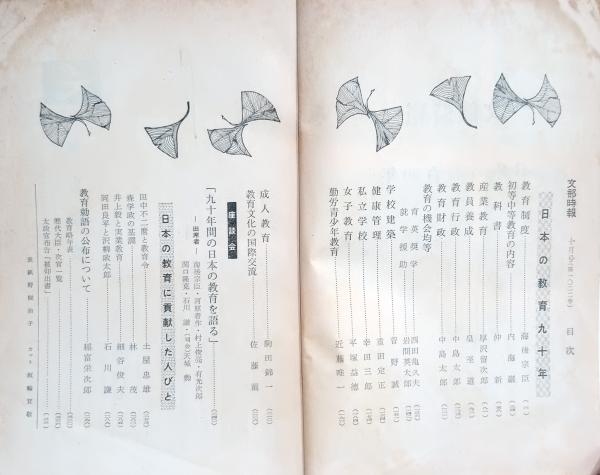 文部時報 十月号(第一〇二二号) 目次
日本の教育九十年
教育制度 海後宗臣
初等中等教育の内容 内海巌
教科書 仲新
産業教育 皇至道
教員養成 厚沢留次郎
教育行政 中島太郎
教育財政 中島太郎
教育の機会均等
育英奨学 西田亀久夫
就学援助 岩間英太郎
学校建築 菅野誠
健康管理 重田定正
私立学校 幸田三郎
女子教育 平塚益徳
勤労青少年教育 近藤唯一
成人教育 駒田錦一
教育文化の国際交流 佐藤薫
座談会
「九十年間の日本の教育を語る」
―出席者― 海後宗臣・河原春作・村上俊亮・有光次郎
関口隆克・石川謙・(司会)天城勲
日本の教育に貢献した人びと
田中不二麿と教育令 土屋忠雄
森学政の基調 林茂
井上毅と実業教育 細谷俊夫
岡田良平と沢柳政太郎 石川謙
教育勅語の公布について 稲富栄次郎
教育略年表
歴代大臣・次官一覧
太政官布告「被仰出書」